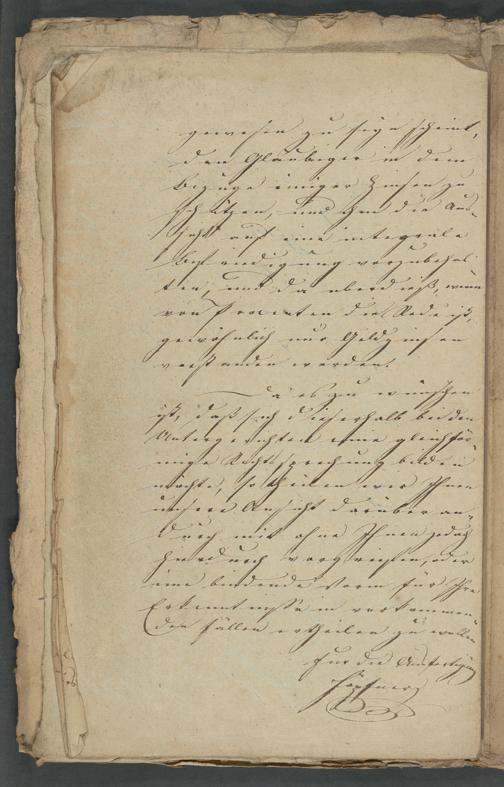 gewesen zu seyn scheint,
den Gläubiger in dem
Bezuge einiger Zinsen zu
schützen, und ihm die Aus-
sicht auf eine integrale
Befriedigung vorzubehal
ten, und da überdieß, wenn
von Procenten die Rede ist,
gewöhnlich nur Geldzinsen
verstanden werden.
Da es zu wünschen
ist, daß sich dieserhalb bei den
Untergerichten eine gleichför
mige Rechtsprechung bilden
möchte, so theilen wir Ihnen
unsere Ansicht darüber an-
durch mit ohne Ihnen jedoch
hierdurch vorgreifen, oder
eine bindende Norm für Ihre
Erkenntnisse in vorkommen
den Fällen ertheilen zu wollen
Für die Ausfertigung